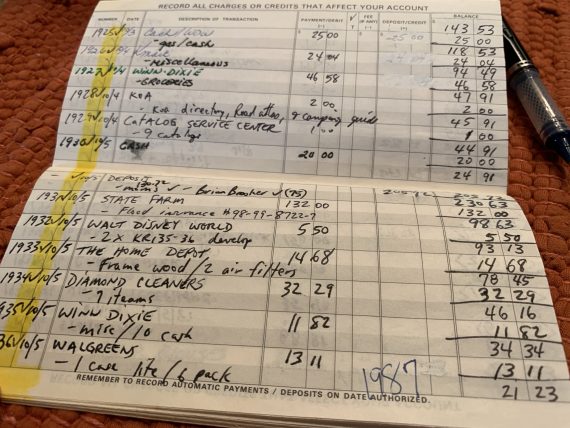 RECORD ALL CHARGES OR CREDITS THAT AFFECT YOUR ACCOUNT
NUMBER DATE DESCRIPTION OF TRANSACTION PAYMENT/DEBIT (-) √ T FEE (IF ANY) (-) DEPOSIT/CREDIT (+) BALANCE
143 53
1925 25 00 25 00
- gas/cash 118 53
1926 24 04 24 04
- miscellaneous 94 49
1927 WINN-DIXIE 46 58 46 58
- GROCERIES 47 91
1928 10/4 KOA 2 00 2 00
- KOA directory, Road atlas, & camping guide 45 91
1929 10/4 CATALOG SERVICE CENTER 1 00 1 00
- 9 catalogs 44 91
1930 10/5 CASH 20 00 20 00
24 91
DEPOSIT 205
- Brian Boosher (75) 230 63
1931 10/5 STATE FARM 132 00 132 00
- Flood insurance #98-99-8722-7 98 63
1932 10/5 WALT DISNEY WORLD 5 50 5 50
- 2 X KR135-36 develop 93 13
1933 10/5 THE HOME DEPOT 14 68 14 68
- Frame wood/2 air filters 78 45
1934 10/5 DIAMOND CLEANERS 32 29 32 29
- 7 iteams 46 16
935 10/5 WINN DIXIE 11 82 11 82
- misc/10 cash 34 34
36 10/5 WALGREENS 13 11 13 11
- 1 case lite/6 pack 21 23
1987
REMEMBER TO RECORD AUTOMATIC PAYMENTS / DEPOSITS ON DATE AUTHORIZED.